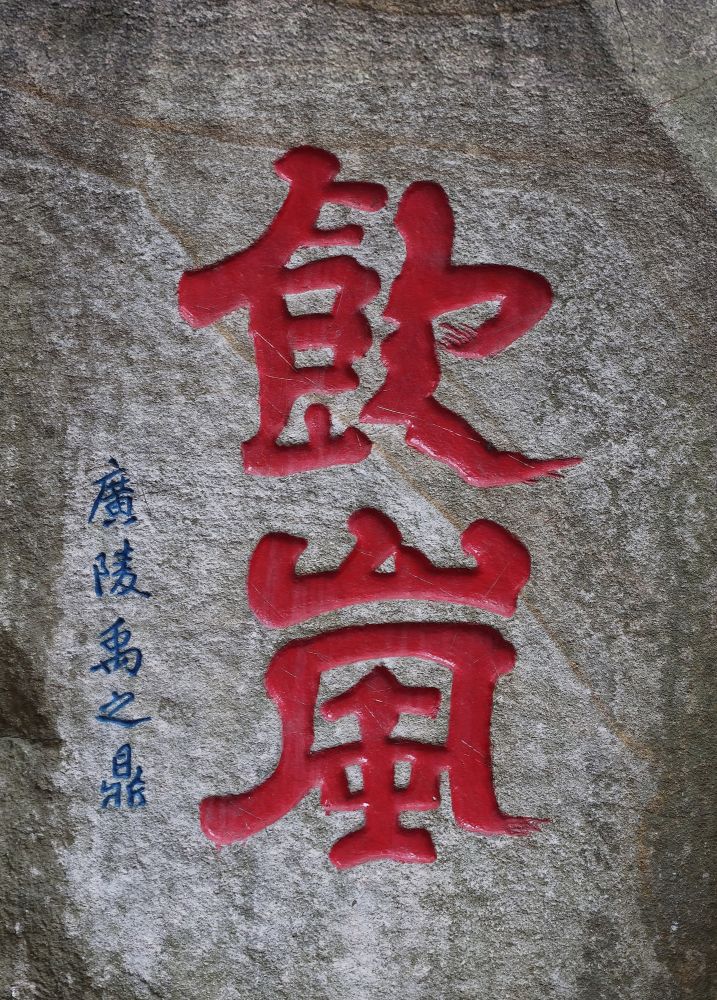 飲嵐
廣陵禹之鼎